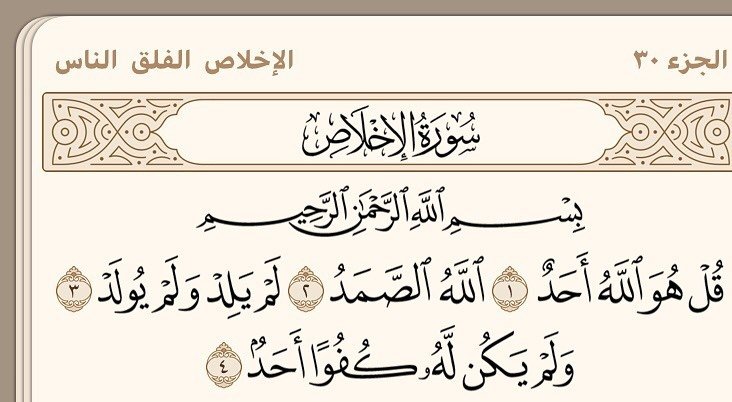 الجزء ٣٠
الإخلاص الفلق الناس
سُورَةُ الإِخْلَاصِ
بِسْمِ ٱللَّهِ ٱلرَّحْمَٰنِ ٱلرَّحِيمِ
قُلْ هُوَ ٱللَّهُ أَحَدٌ ١ ٱللَّهُ ٱلصَّمَدُ ٢ لَمْ يَلِدْ وَلَمْ يُولَدْ ٣
وَلَمْ يَكُن لَّهُۥ كُفُوًا أَحَدٌۢ ٤